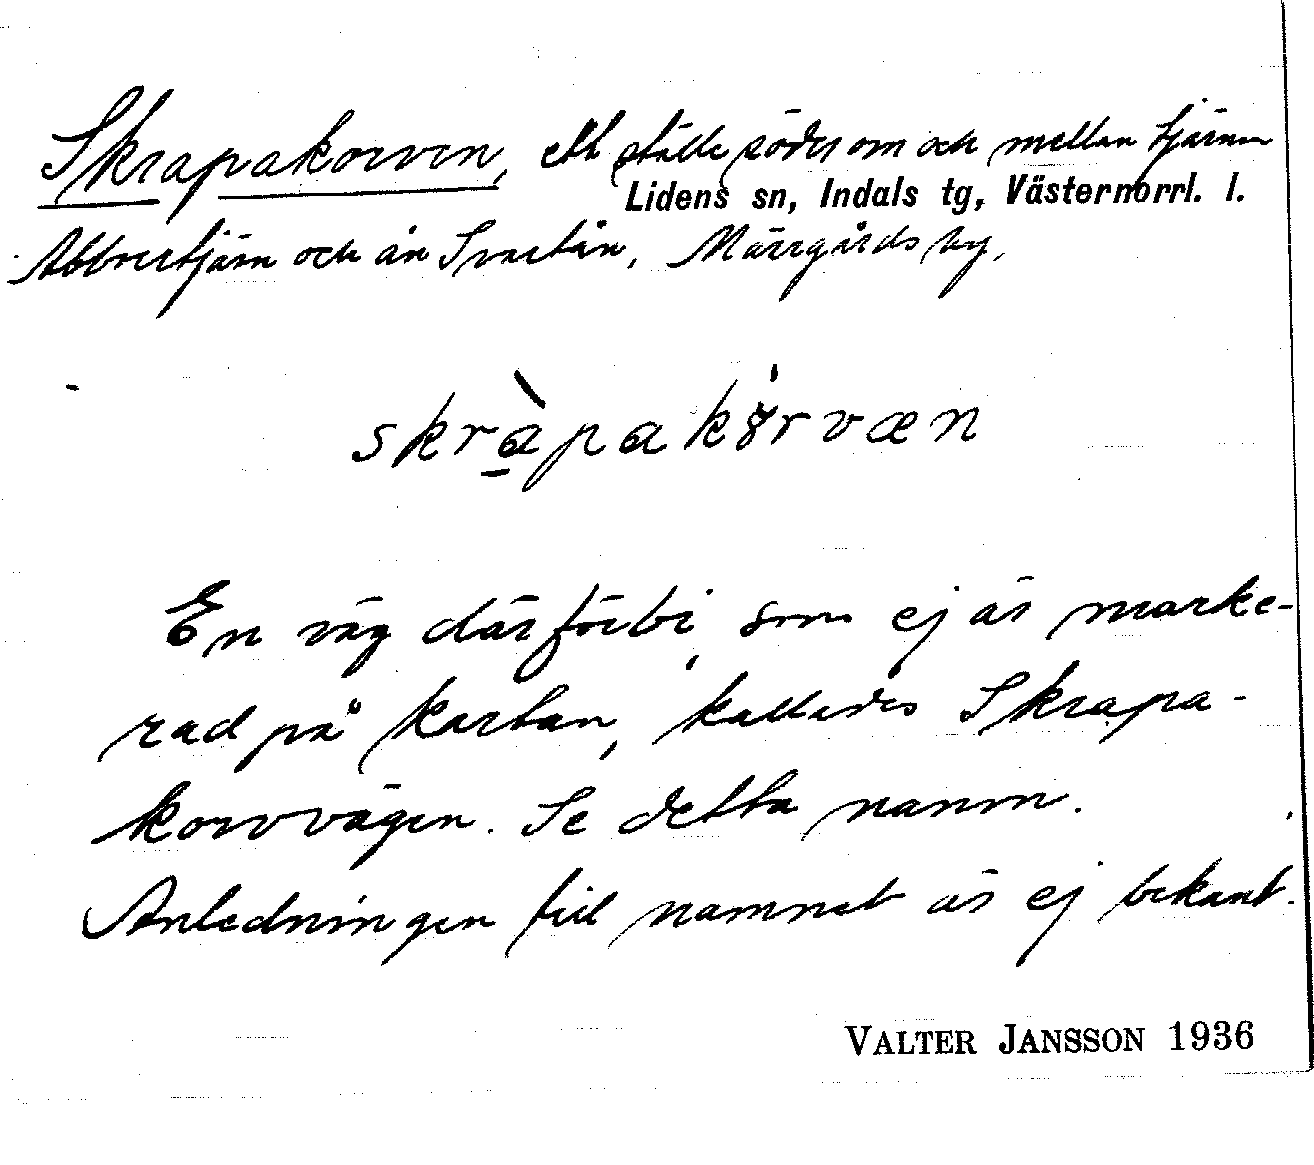 Skrapakorven, ett ställe söder om och mellan tjärnen
Lidens sn, Indals tg, Västernorrl. l.
Abbortjärn och ån Svartån, Märrgårds by.
skràpakȯrvæn
En väg därförbi, som ej är marke-
rad på kartan, kallades Skrapa-
korvvägen. Se detta namn.
Anledningen till namnet är ej bekant.
VALTER JANSSON 1936